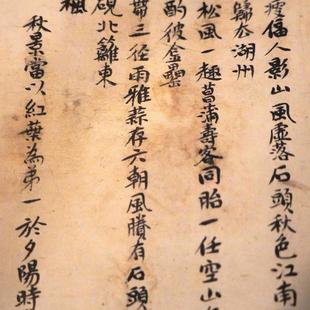 瘦偪人影山風虛落石頭秋色江南
歸太湖州
松風一趣菖蒲壽客同胎一任空山
酌彼金罍
帶三徑雨雅蒜存六朝風賸有石頭
硯北籬東
楓
秋景當以紅葉為弟一於夕陽時